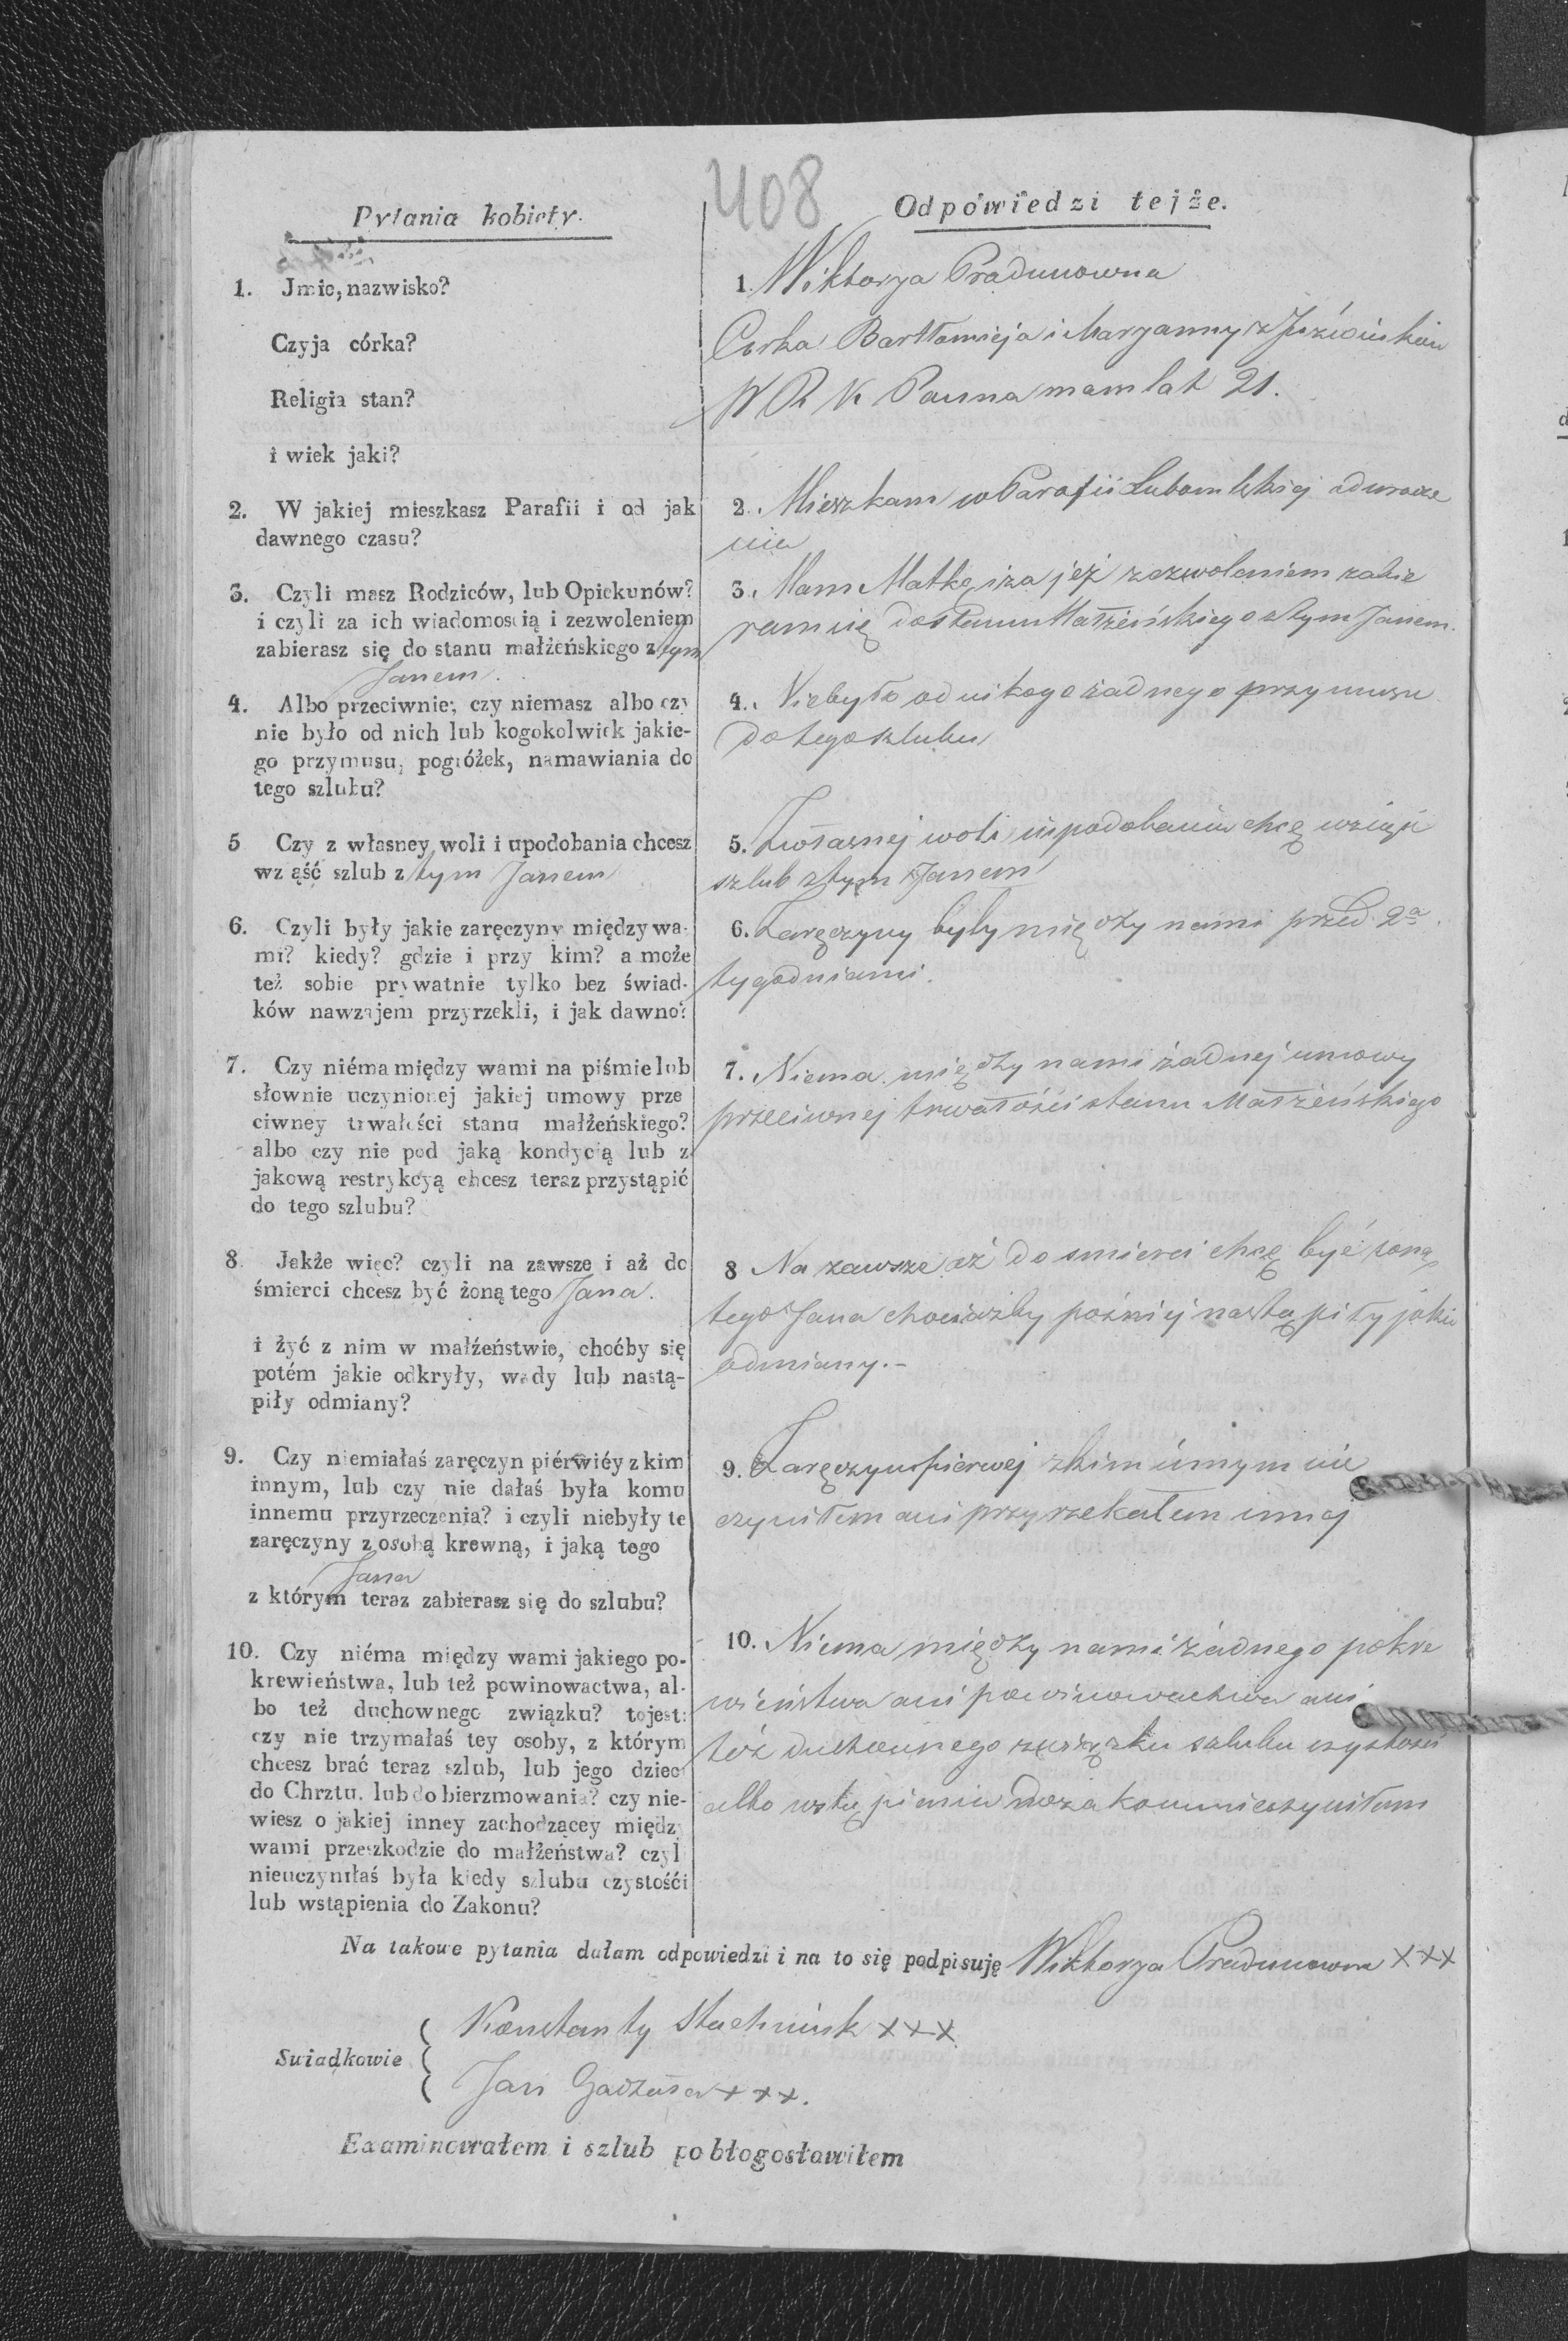 408
Pytania kobiety.
1. Jmie, nazwisko?
Czyja córka?
Religia stan?
i wiek jaki?
2. W jakiej mieszkasz Parafii i od jak
dawnego czasu?
3. Czyli masz Rodziców, lub Opiekunów?
i czyli za ich wiadomoscią i zezwoleniem
zabierasz się do stanu małżeńskiego z tym
Janem.
4. Albo przeciwnie; czy niemasz albo czy
nie było od nich lub kogokolwiek jakie-
go przymusu, pogróżek, namawiania do
tego szlubu?
5 Czy z własney woli i upodobania chcesz
wziąść szlub z tym Janem
6. Czyli były jakie zaręczyny między wa-
mi? kiedy? gdzie i przy kim? a może
też sobie prywatnie tylko bez świad-
ków nawzajem przyrzekli, i jak dawno?
7. Czy niéma między wami na piśmie lub
słownie uczynionej jakiej umowy prze
ciwney trwałości stanu małżeńskiego?
albo czy nie pod jaką kondycią lub z
jakową restrykcyą chcesz teraz przystąpić
do tego szlubu?
8. Jakże więc? czyli na zawsze i aż do
śmierci chcesz być żoną tego Jana.
i żyć z nim w małżeństwie, choćby się
potém jakie odkryły, wady lub nastą-
piły odmiany?
9. Czy niemiałaś zaręczyn piérwiéy z kim
innym, lub czy nie dałaś była komu
innemu przyrzeczenia? i czyli niebyły te
zaręczyny z osobą krewną, i jaką tego
Jana
z którym teraz zabierasz się do szlubu?
10. Czy niéma między wami jakiego po-
krewieństwa, lub też powinowactwa, al-
bo też duchownego związku? tojest:
czy nie trzymałaś tey osoby, z którym
chcesz brać teraz szlub, lub jego dzieci
do Chrztu, lub do bierzmowania? czy nie-
wiesz o jakiej inney zachodzącey między
wami przeszkodzie do małżeństwa? czyli
nieuczyniłaś była kiedy szlubu czystośći
lub wstąpienia do Zakonu?
Odpowiedzi tejże.
1. Wiktorya Pradunowna
Corka Bartłomieja i Maryanny z
W R K Panna mam lat 21.
2. Mieszkam w Parafii Lubomlskiej od urodze
nia
3. Mam Matkę i za jej zezwoleniem zabie
ram się do stanu Małżeńskiego z tym Janem.
4. Niebyło od nikogo żadnego przymusu
do tego szlubu
5. Z własnej woli i upodobania chcę wziąść
szlub z tym Janem
6. Zaręczyny były między nami przed 2a
tygodniami.
7. Niema między nami żadnej umowy
przeciwnej trwałości stanu Małżeńskiego
8 Na zawsze aż do smierci chcę być żoną
tego Jana chociażby poźniej nastąpiły jakie
odmiany.-
9. Zaręczyn pierwej z kim innym nie
czyniłem ani przyrzekałem innej
10. Niema między nami żadnego pokre
wieństwa ani powinowactwa ani
też duchownego związku szlubu czystości
albo wstąpienia do zakonu nieczyniłam
Na takowe pytania dałam odpowiedzi i na to się podpisuję Wiktorya Pradunowna XXX
Swiadkowie
Konstanty Stachniuk XXX
Jan XXX.
Examinowałem i szlub pobłogosławiłem